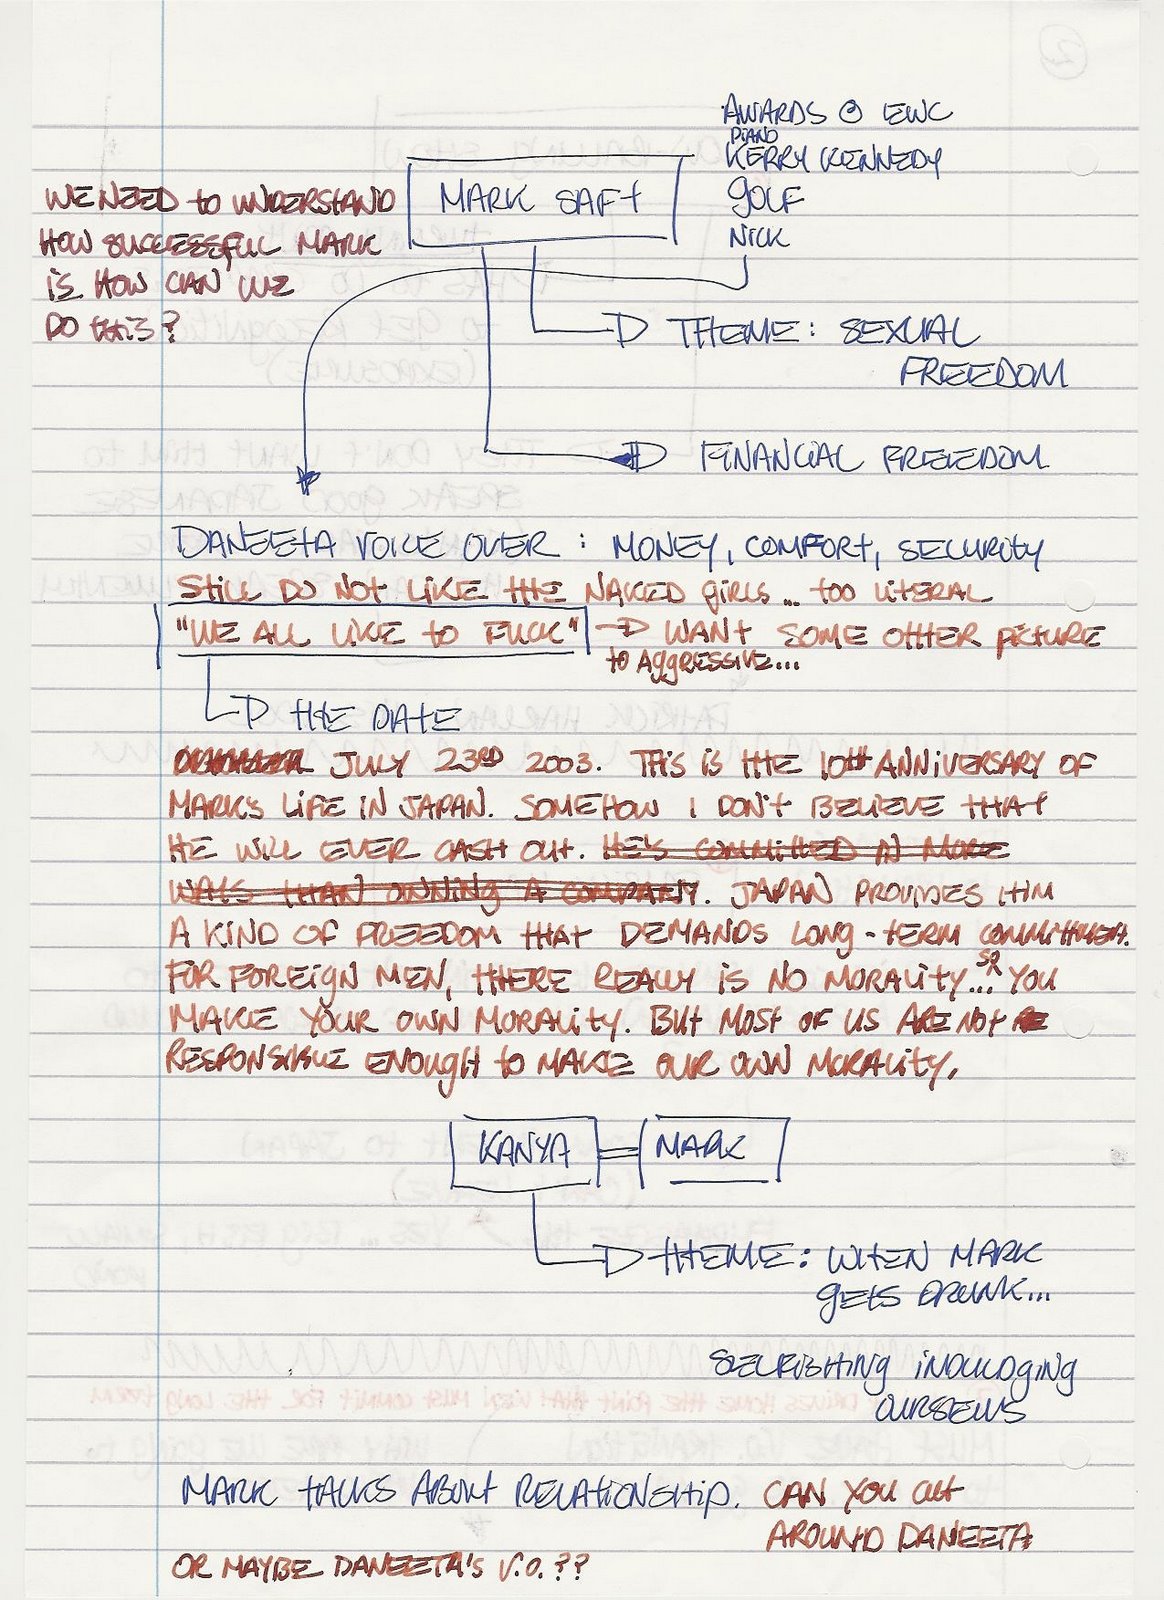 AWARDS @ EWC
PIANO
KERRY KENNEDY
GOLF
NICK
MARK SAFT
WE NEED to UNDERSTAND
HOW SUCCESSFUL MARK
IS. HOW CAN WE
DO tHIS?
THEME: SEXUAL
FREEDOM
FINANCIAL FREEDOM
DANEETA VOICE OVER: MONEY, COMFORT, SECURITY
Still DO NOT LIKE tHE NAKED girls... too LITERAL
"WE ALL LIKE to FUCK" WANT SOME OTHER PICTURE
to AggRESSIVE...
tHE DATE
JULY 23RD 2003. THIS IS tHE 10tH ANNiVERSARY OF
MARK'S LiFE iN JAPAN. SOMEHOW I DON't BELIEVE tHAT
HE WILL EVER CASH OUt. HE'S COMMITTED IN MORE
WAYS tHAN OWNiNg A COMPANY. JAPAN PROVIDES HIM
A KIND OF FREEDOM tHAt DEMANDS LONg-TERM COMMITMENT.
FOR FOREIgN MEN, tHERE REALLY IS NO MORALITY... SO YOU
MAKE YOUR OWN MORALITY. BUt MOSt OF US ARE NOt
RESPONSIBLE ENOUgH to MAKE OUR OWN MORALITY.
KANYA = MARK
tHEME: WHEN MARK
gETS DRUNK...
OURSELVES
MARK tALKS ABOUt RELAtiONSHIP. CAN YOU CUt
AROUND DANEETA
OR MAYBE DANEETA'S V.O.??